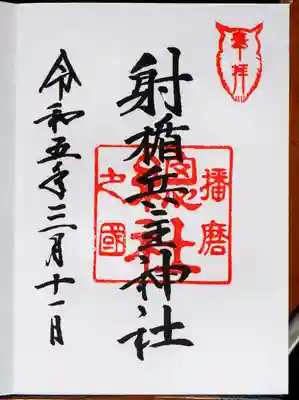 奉拝
播磨
總社
之國
射楯兵主神社
令和五年三月十一日